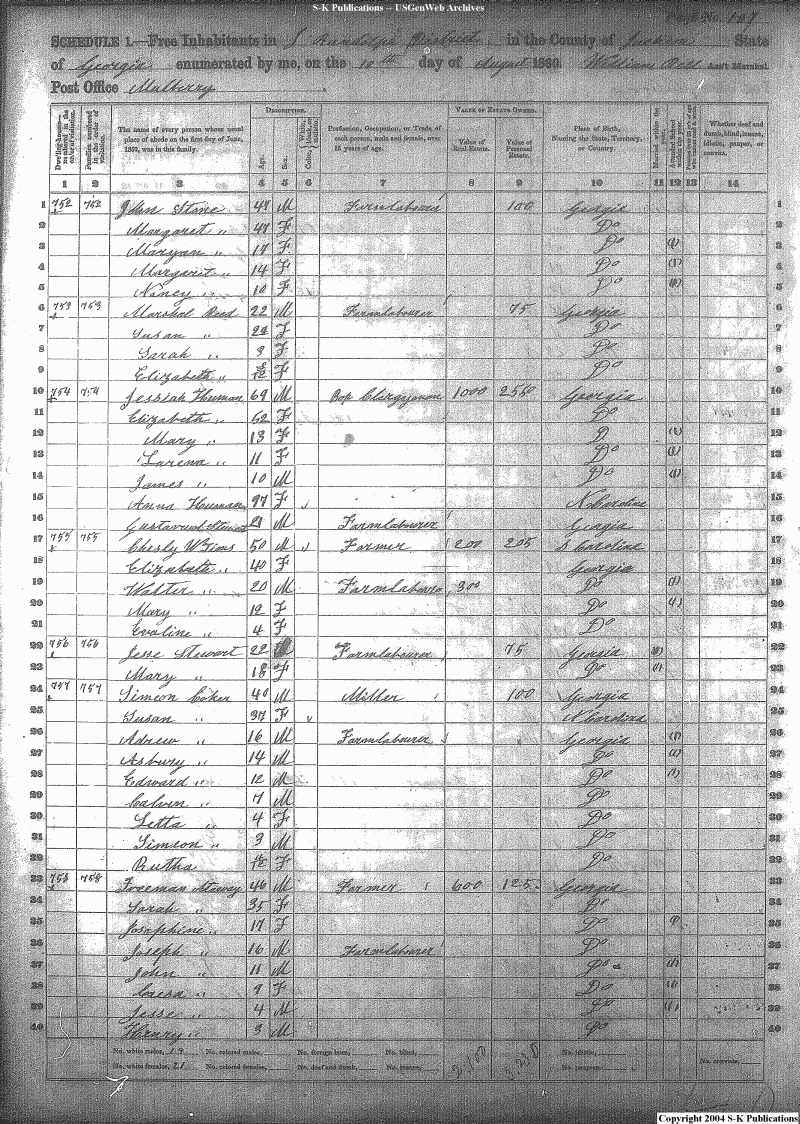 S-K Publications – USGenWeb Archives
Page No. 107
SCHEDULE 1.—Free Inhabitants in Randolph District in the County of Jackson State
of Georgia enumerated by me, on the 10th day of August 1860. William Bell Ass't Marshal
Post Office Mulberry
DESCRIPTION. VALUE OF ESTATE OWNED.
Dwelling-houses— numbered in the order of visitation. Families numbered in the order of visitation. The name of every person whose usual place of abode on the first day of June, 1860, was in this family. Age. Sex. Color, White, black, or mulatto. Profession, Occupation, or Trade of each person, male and female, over 15 years of age. Value of Real Estate. Value of Personal Estate. Place of Birth, Naming the State, Territory, or Country. Married within the year. Attended School within the year. Whether deaf and dumb, blind, insane, idiotic, pauper, or convict.
1 2 3 4 5 6 7 8 9 10 11 12 13 14
1 752 752 John Stone 47 M Farmlabourer 100 Georgia 1
2 Margaret " 47 F Do 2
3 Maryan " 17 F Do (1) 3
4 Margaret " 14 F Do (1) 4
5 Nancy " 10 F Do (1) 5
6 753 753 Marshal Reed 22 M Farmlabourer 75 Georgia 6
7 Susan " 24 F Do 7
8 Sarah " 3 F Do 8
9 Elizabeth " F Do 9
10 754 754 Jessiah Human 69 M Bap Clergyman 1000 2550 Georgia 10
11 Elizabeth " 52 F Do 11
12 Mary " 13 F D (1) 12
13 Lurena " 11 F Do (1) 13
14 James " 10 M Do (1) 14
15 Anna Human 97 F N Carolina 15
16 Gustavus Stewart 21 M Farmlabourer Georgia 16
17 755 755 Chesly W Sims 50 M Farmer 200 205 S Carolina 17
18 Elizabeth " 40 F Georgia 18
19 Walter " 20 M Farmlaborer 300 Do (1) 19
20 Mary " 12 F Do (1) 20
21 Evaline " 4 F Do 21
22 756 756 Jesse Stewart 22 Farmlabourer 75 Georgia (1) 22
23 Mary " 18 F Do (1) 23
24 757 757 Simeon Coker 40 M Miller 100 Georgia 24
25 Susan " 37 F N Carolina 25
26 Adrew " 16 M Farmlabourer Georgia (1) 26
27 Asbury " 14 M Do (1) 27
28 Edward " 12 M Do (1) 28
29 Calvin " 7 M Do 29
30 Letta " 4 F Do 30
31 Simson " 3 M Do 31
32 Rutha F Do 32
33 758 758 Freeman 46 M Farmer 600 125 Georgia 33
34 Sarah " 35 F Do 34
35 Josephine " 17 F Do (1) 35
36 Joseph " 16 M Farmlabourer Do 36
37 John " 11 M Do (1) 37
38 " 9 F Do (1) 38
39 Jesse " 4 M Do (1) 39
40 Henry " 3 M Do 40
No. white males, 19 No. colored males, No. foreign born, No. blind, No. idiotic,
No. white females, 21 No. colored females, No. deaf and dumb, No. insane, 2,100 3,230 No. paupers, No. convicts,
Copyright 2004 S-K Publications